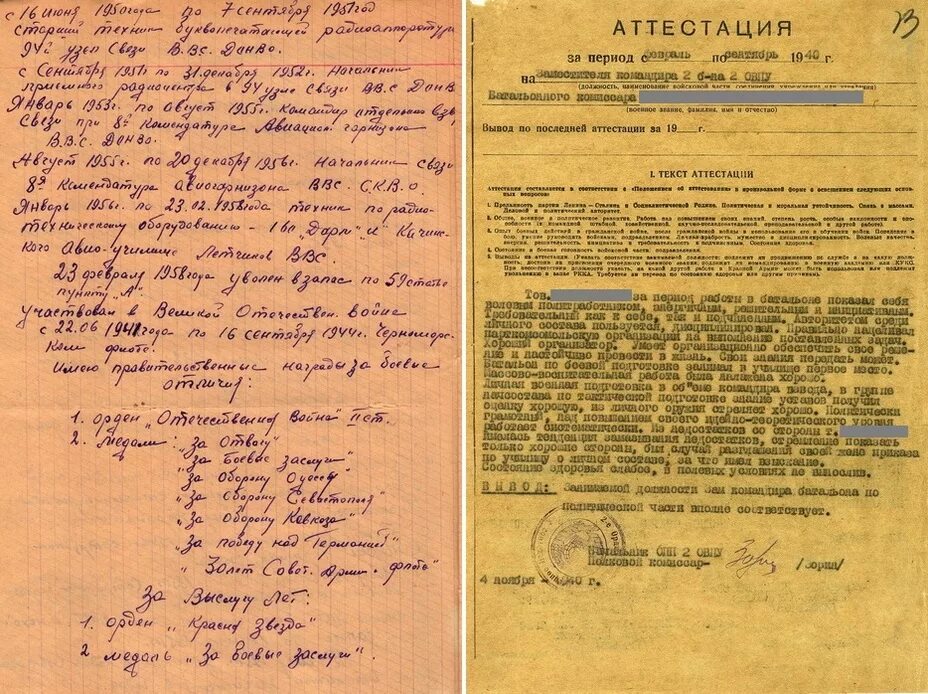 с 16 июня 1950года по 7 сентября 1951год
старший техник буквопечатающей радиоаппаратуры
94й узел Связи В.В.С. ДонВо.
с Сентября 1951г по 31 декабря 1952г. Начальник
приемного радиоцентра в 94 узле Связи ВВ.С ДонВ
Январь 1953г. по август 1955г. Командир отдельно взв,
Связи при 8й Комендатуре Авиацион. гарнизона
В.В.С. ДонВо.
Август 1955г. по 20 декабря 1956г. Начальник связи
8й Комендатура авиогарнизона ВВС. С.К.В.О.
Январь 1956г. по 23.02.1958года техник по радио-
техническому оборудованию -
кого Авио-училище Летчиков ВВС.
23 февраля 1958года уволен в запас по 59 статье
пункту „А".
участвовал в Великой Отечествен. войне
с 22.06 1941года по 16 сентября 1944г. Черноморс-
ком флоте.
Имею правительственные награды за боевые
отличия:
1. орден „Отечественная Война" II ст.
2. Медали: „За Отвагу"
„За боевые заслуги"
„За Оборону Одессы"
„За оборону Севастополя"
„За оборону Кавказа"
„За победу над Германией"
„30 лет Совет. Армии и флота"
За Выслугу Лет:
1. орден „Красная Звезда"
2 медаль „За боевые заслуги".
13
АТТЕСТАЦИЯ
за период с февраль по сентябрь 1940 г.
на Заместителя командира 2 б-на 2 ОВПУ
(должность, наименование войсковой части соединения, управления или учреждения)
Батальонного комиссара
(военное звание, фамилия, имя и отчество)
Вывод по последней аттестации за 19 г.
I. ТЕКСТ АТТЕСТАЦИИ
Аттестация составляется в соответствии с «Положением об аттестовании» в произвольной форме с освещением следующих основ-
ных вопросов:
1. Преданность партии Ленина—Сталина и Социалистической Родине. Политическая и моральная устойчивость. Связь с массами.
Деловой и политический авторитет.
Тов. за период работы в батальоне показал себя
волевым политработником, энергичным, решительным и инициативным.
Требовательный как к себе, так и подчиненным. Авторитетом среди
личного состава пользуется, дисциплинирован. Правильно нацеливал
парткомсомольскую организацию на выполнение поставленных задач.
Хороший организатор. Умеет организационно обеспечить свое реше-
ние и настойчиво провести в жизнь. Свои знания передать может.
Батальон по боевой подготовке занимал в училище первое место.
Массово-воспитательная работа была налажена хорошо.
Личная военная подготовка в об'еме командира взвода, в группе
начсостава по тактической подготовке знание устава получил
оценку хорошую, из личного оружия стреляет хорошо. Политически
грамотный, над повышением своего идейно-теоретического уровня
работает систематически. Из недостатков со стороны т.
имелась тенденция замазывания недостатков, стремление показать
только хорошие стороны, был случай разглашения своей жене приказа
по училищу о личном составе, за что имел взыскание.
Состояние здоровья слабое, в полевых условиях не вынослив.
ВЫВОД: Занимаемой должности зам командира батальона по
политической части вполне соответствует.
Начальник ОПП 2 ОВПУ
Полковой комиссар- /Зорин/
4 ноября 1940 г.